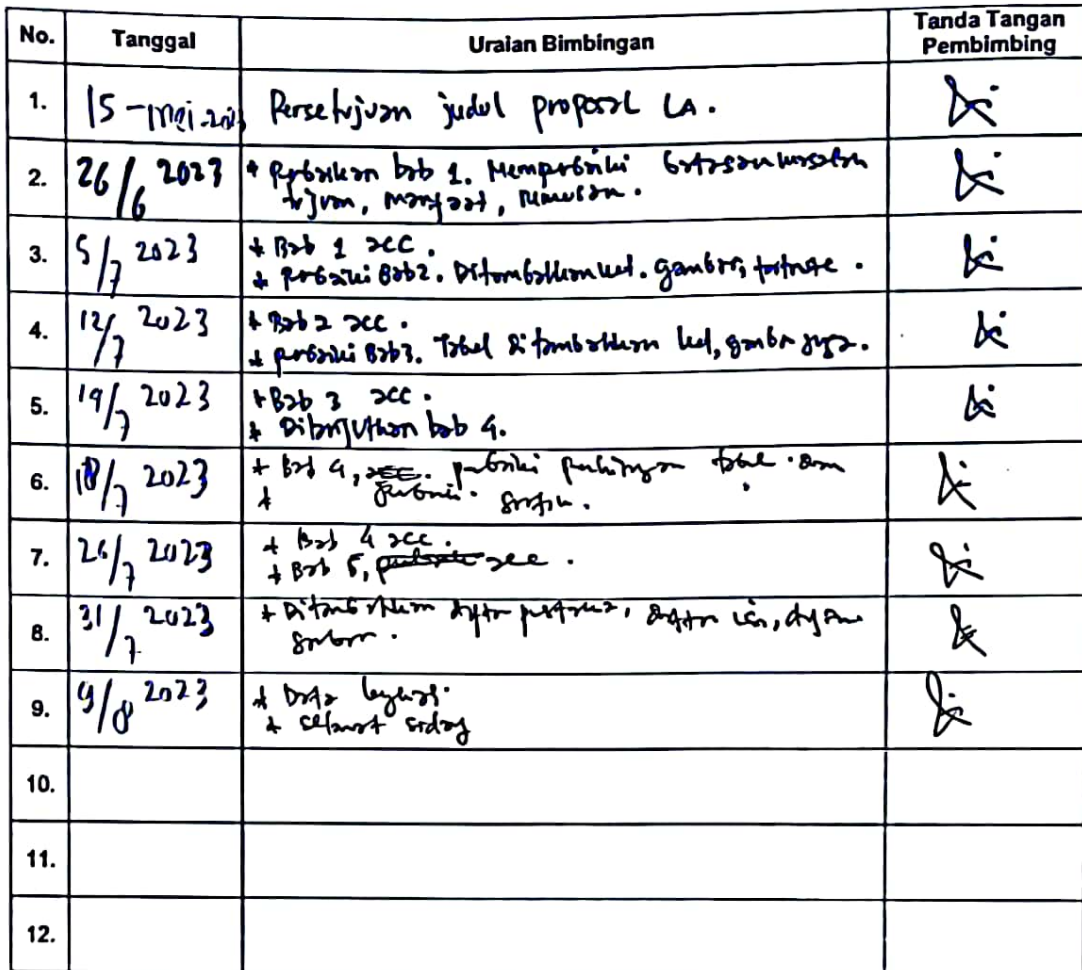 No. Tanggal Uraian Bimbingan Tanda Tangan Pembimbing
1. 15-Mei-2023 Persetujuan judul proposal LA.
2. 26/6 2023 * Perbaikan bab 1. Memperbaiki batasan masalah
tujuan, manfaat, rumusan.
3. 5/7 2023 * Bab 1 acc.
* perbaiki Bab2. Ditambahkan ket. gambar,
4. 12/7 2023 * Bab 2 acc.
* perbaiki Bab3. Tabel Ditambahkan ket, gambar juga.
5. 19/7 2023 * Bab 3 acc.
* Dilanjutkan bab 4.
6. 18/7 2023 * Bab 4, acc. perbaiki perhitungan tabel dan
* grafik.
7. 26/7 2023 * Bab 4 acc.
* Bab 5, acc.
8. 31/7 2023 * Ditambahkan daftar pustaka, daftar isi, daftar
gambar.
9. 9/8 2023 * Data
* selamat sidang
10.
11.
12.